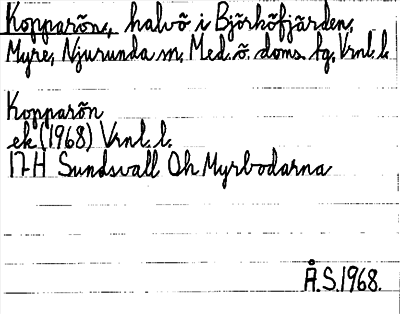 Kopparön, halvö i Björköfjärden,
Myre, Njurunda sn, Med. ö. doms. tg, Vrnl. l.
Kopparön
ek (1968) Vrnl. l.
17H Sundsvall Öh Myrbodarna
Å.S.1968.